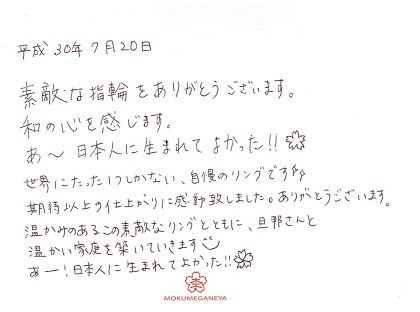 平成 30年 7月 20日
素敵な指輪をありがとうございます。
和の心を感じます。
あ〜 日本人に生まれてよかった!!
世界にたった1つしかない、自慢のリングです
期待以上の仕上がりに感動致しました。ありがとうございます。
温かみのあるこの素敵なリングとともに、旦那さんと
温かい家庭を築いていきます
あー!日本人に生まれてよかった!!
MOKUMEGANEYA